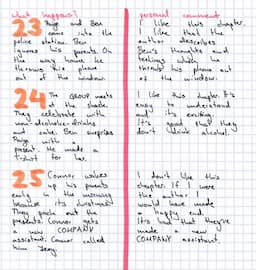 what happens?
23 Paige and Ben
come into the
police station. Ben
ignores his parents. On
the way home he
throws his phone
out of the window.
24 The GROUP meets
at the shack.
They celebrate with
non-alcoholic drinks
and cake. Ben surprise
Paige with a
present. He made a
t-shirt for her.
25 Connor wakes
up his parents
early in the morning
because it's christmas.
They pack out the
presents. Connor gets
a new COMPANY
assistant. Connor called
him Jerry.
personal comment
I like this chapter.
I like that the
author describes
Ben's thoughts and
feelings when he
throws his phone out
of the window.
I like this chapter. It's
easy to understand
and it's exciting.
It's good that they
don't drink alcohol.
I don't like this
chapter. If I were
the author I
would have made
a happy end.
It's bad that they've
made a new
COMPANY assistant.